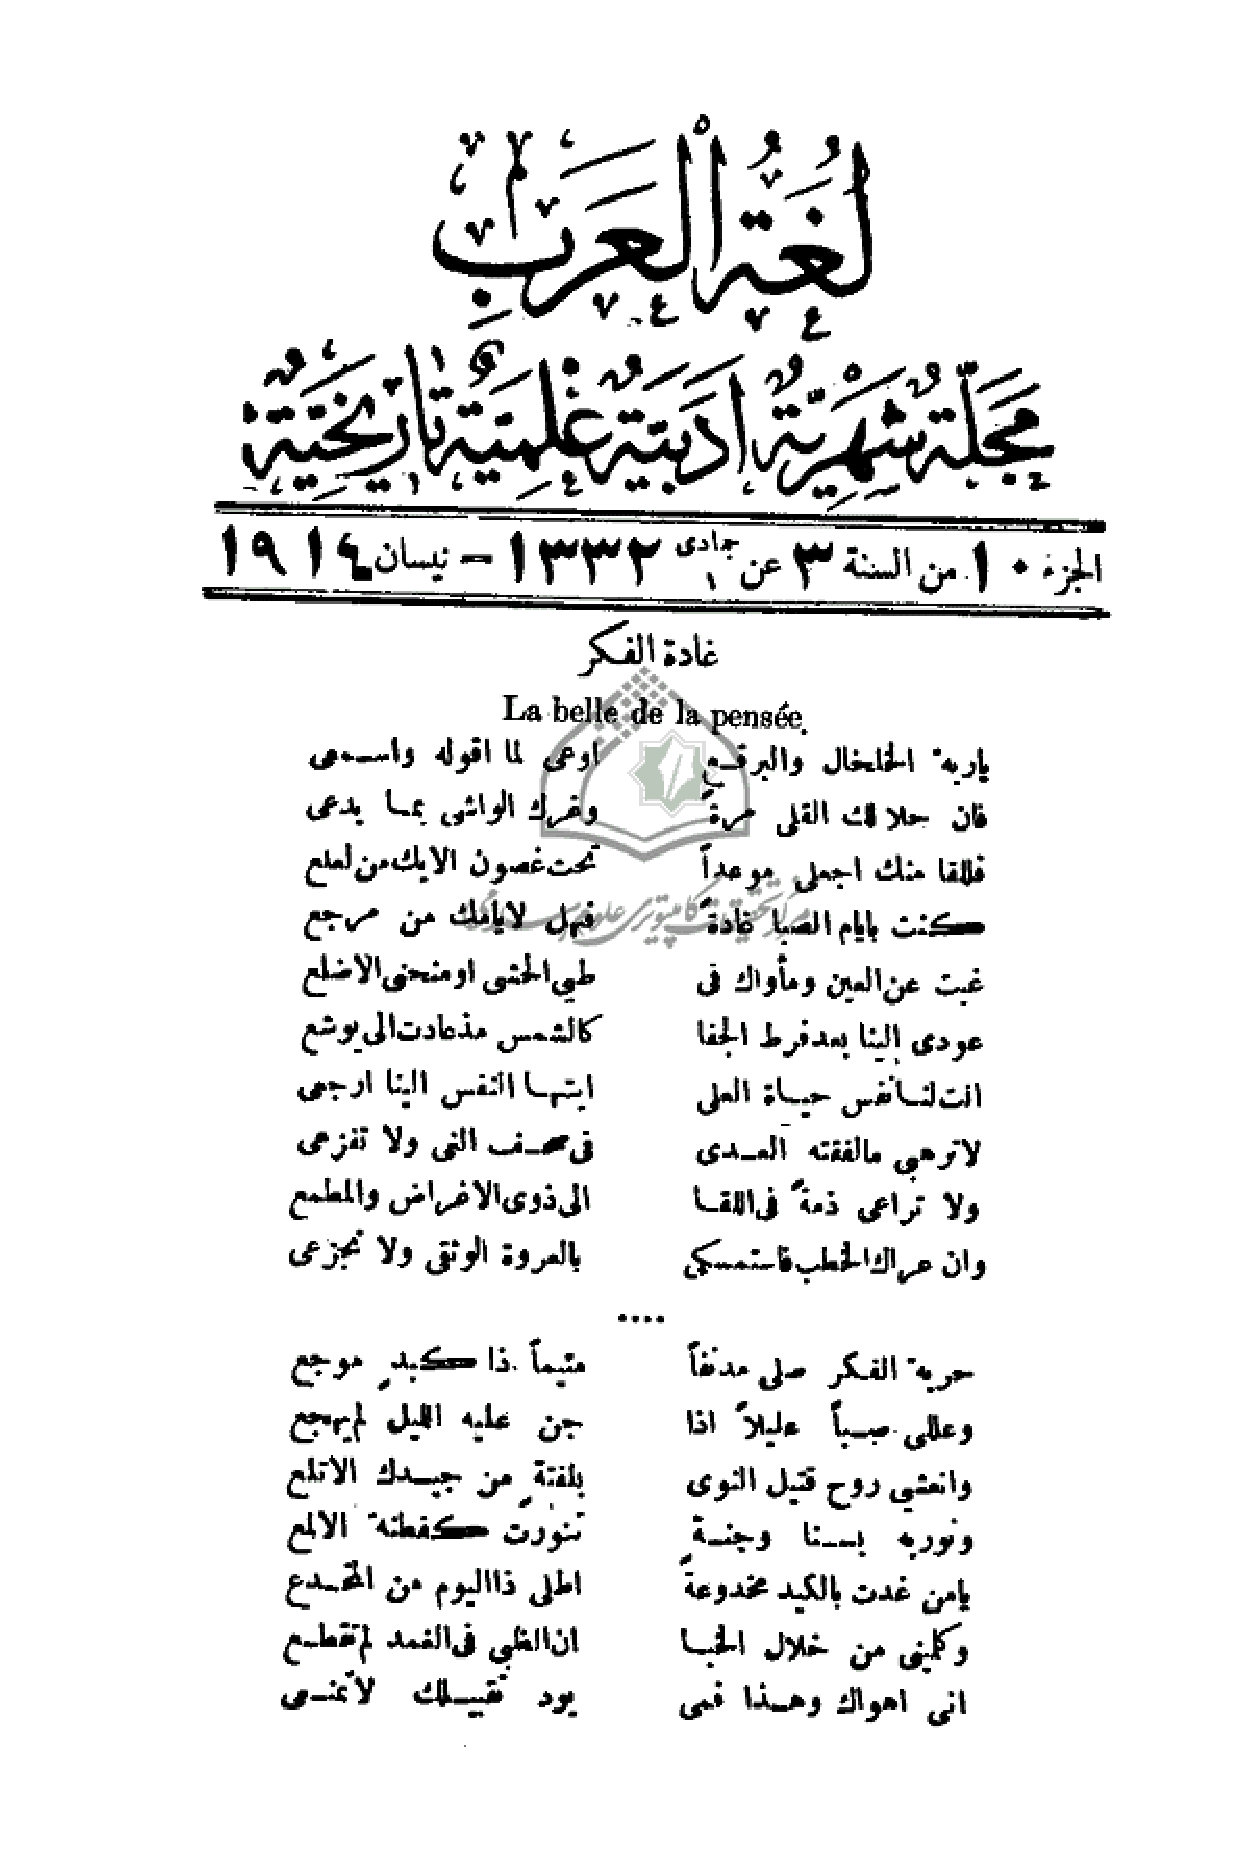 لُغَةُ الْعَرَبِ
مَجَلَّةٌ شَهْرِيَّةٌ اَدَبِيَّةٌ عِلْمِيَّةٌ تَارِيخِيَّةٌ
الجزء ١٠. من السنة ٣ عن جمادى ١ ١٣٣٢ – نيسان ١٩١٤
غادة الفكر
La belle de la pensée.
ياربة الخلخال والبرقـع اوعى لما اقوله واسـمعى
فان حلا لك القلى مرةً وغرك الواشى بمـا يدعى
فللقا منك اجعلى موعداً تحت غصون الايك من لعلع
كنت بايام الصبا غادةً فهل لايامك من مرجع
غبت عن العين ومأواك فى طيى الحشى او منحنى الاضلع
عودى إلينا بعد فرط الجفا كالشمس مذ عادت الى يوشع
انت لنـا نفس حيـاة العلى ايتهـا النفس الينا ارجعى
لا ترهبى مالفقته العـدى فى صحـف النى ولا تفزعى
ولا تراعى ذمةً فى اللقـا الى ذوى الاغراض والمطمع
وان عراك الخطب فاستمسكي بالعروة الوثقى ولا تجزعى
....
حرية الفكر صلى مدنفاً متيماً ذا كبدٍ موجع
وعللى صـباً عليلاً اذا جن عليه الليل لم يهجع
وانعشى روح قتيل النوى بلفتةٍ من جيـدك الاتلع
ونوريه بـنا وجنـة تنورت كقطنة الالمع
يامن غدت بالكيد مخدوعةً اطلى ذا اليوم من المخـدع
وكلمينى من خلال الخبـا ان الظبى فى الغمد لم تقطـع
انى اهواك وهـذا فمى يود تقبيـلك لا تمنـعى
مركز تحقيقات كامپيوترى علوم اسلامى